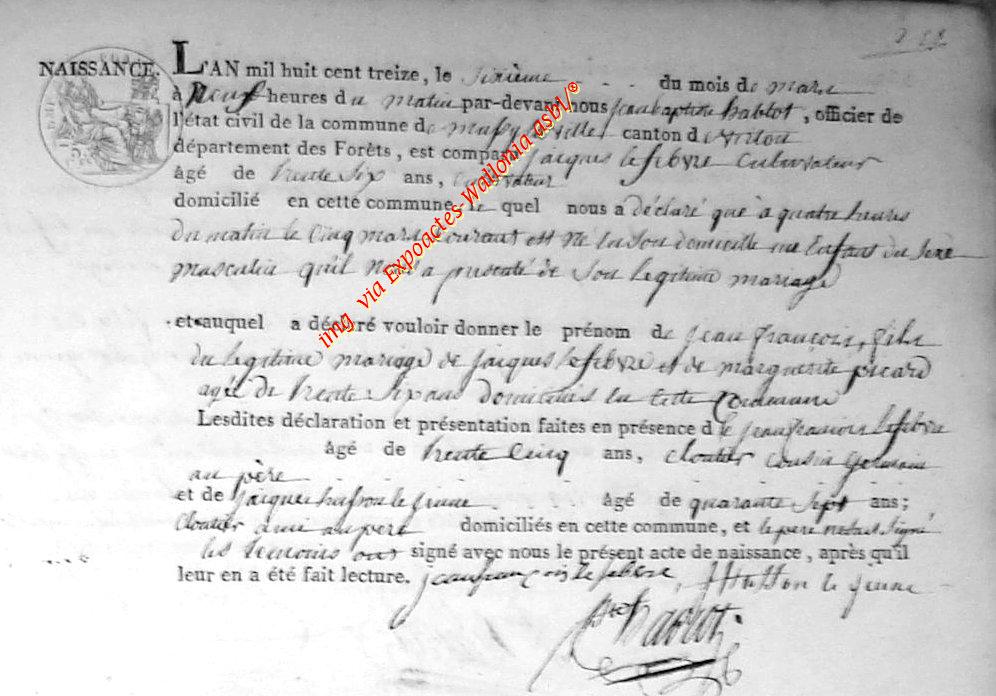 NAISSANCE.
L'AN mil huit cent treize, le sixième du mois de mars
à Neuf heures du matin par-devant nous Jean baptiste hablot, officier de
l'état civil de la commune de mussy la ville canton de virton
département des Forêts, est comparu jacques lefebvre Cultivateur
âgé de trente Six ans, Cultivateur
domicilié en cette commune, le quel nous a déclaré que à quatre heures
du matin le Cinq mars Courant est né en Son domicille un Enfant du Sexe
masculin qu'il nous a presenté de Son legitime mariage
et auquel a déclaré vouloir donner le prénom de jean françois, fils
du legitime mariage de jacques lefebvre et de marguerite picard
agée de trente Six ans domiciliés en Cette Commune
Lesdites déclaration et présentation faites en présence de jean francois lefebvre
âgé de trente Cinq ans, cloutier cousin Germain
au père
et de jacques husson le jeune âgé de quarante Sept ans;
Cloutier ami au pere domiciliés en cette commune, et le pere
les temoins ont signé avec nous le présent acte de naissance, après qu'il
leur en a été fait lecture. jean françois lefebvre, JHusson le jeune
hablot
img via Expoactes-Wallonia asbl/®